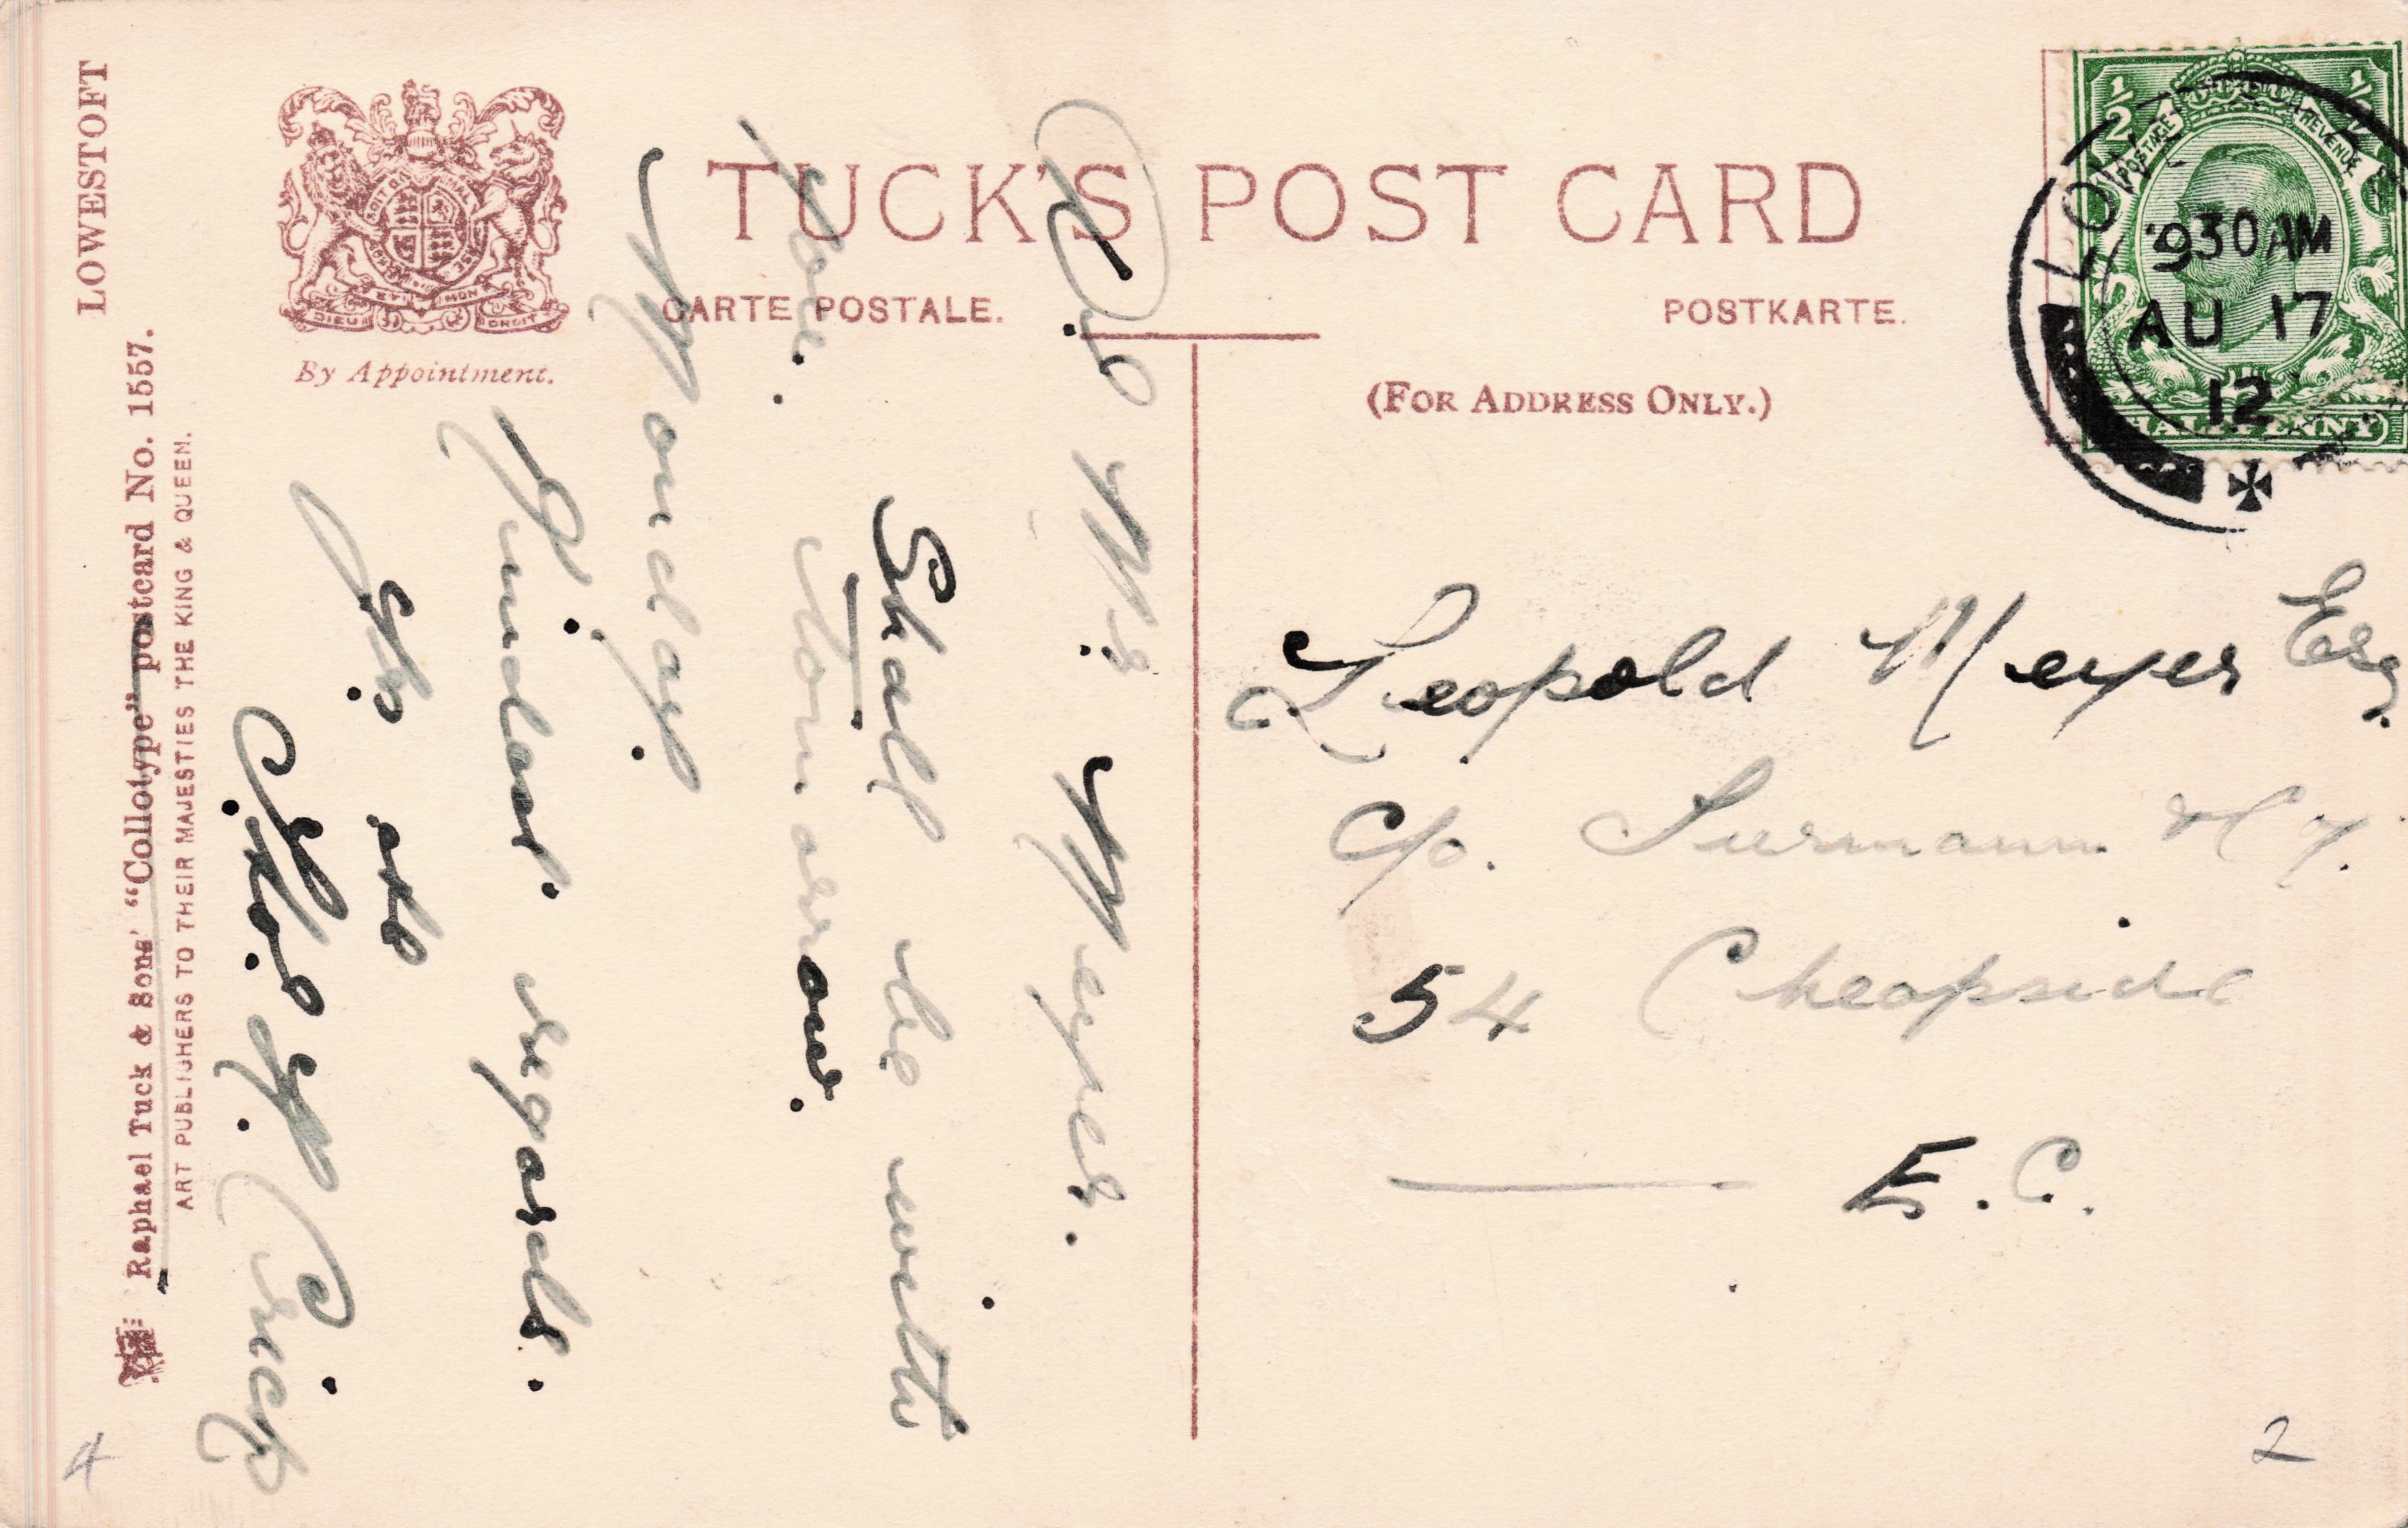 LOWESTOFT
Raphael Tuck & Sons' "Collotype" postcard No. 1557.
ART PUBLISHERS TO THEIR MAJESTIES THE KING & QUEEN.
DIEU ET MON DROIT
By Appointment.
TUCK'S POST CARD
CARTE POSTALE.
POSTKARTE.
(FOR ADDRESS ONLY.)
1/2 1/2
POSTAGE REVENUE
HALFPENNY
930 AM
AU 17
12
Mr Meyer.
Shall be with
you.
Monday.
Kindest regards.
Yrs
Crisp
Leopold Meyer Esq.
C/o.
54 Cheapside
E.C.
4
2